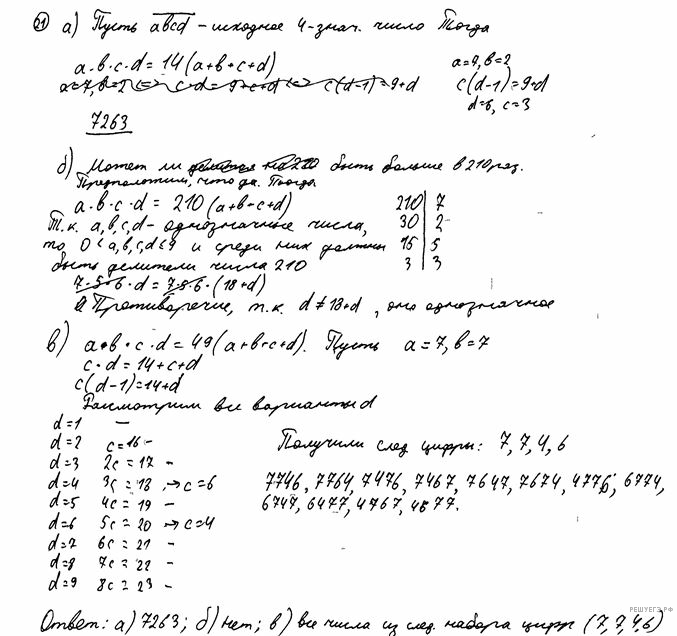 21 а) Пусть abcd – исходное 4-знач. число Тогда
a·b·c·d = 14(a+b+c+d)
a=7, b=2 c·d = 9+c+d c(d-1)=9+d
a=7, b=2
c(d-1)=9+d
d=6, c=3
7263
б) Может ли делится на 210 быть больше в 210 раз.
Предположим, что да. Тогда
a·b·c·d = 210(a+b+c+d)
Т.к. a,b,c,d – однозначные числа,
то 0<a,b,c,d≤9 и среди них должны
быть делители числа 210
210 | 7
30 | 2
15 | 5
3 | 3
7·5·6·d = 7·5·6·(18+d)
Противоречие, т.к. d≠18+d, оно однозначное
в) a·b·c·d = 49(a+b+c+d). Пусть a=7, b=7
c·d = 14+c+d
c(d-1)=14+d
Рассмотрим все варианты d
d=1 –
d=2 c=16 –
d=3 2c=17 –
d=4 3c=18 → c=6
d=5 4c=19 –
d=6 5c=20 → c=4
d=7 6c=21 –
d=8 7c=22 –
d=9 8c=23 –
Получили след цифры: 7, 7, 4, 6
7746, 7764, 7476, 7467, 7647, 7674, 4776, 6774,
6747, 6477, 4767, 4677.
Ответ: а) 7263; б) нет; в) все числа из след. набора цифр (7,7,4,6)
РЕШУЕГЭ.РФ